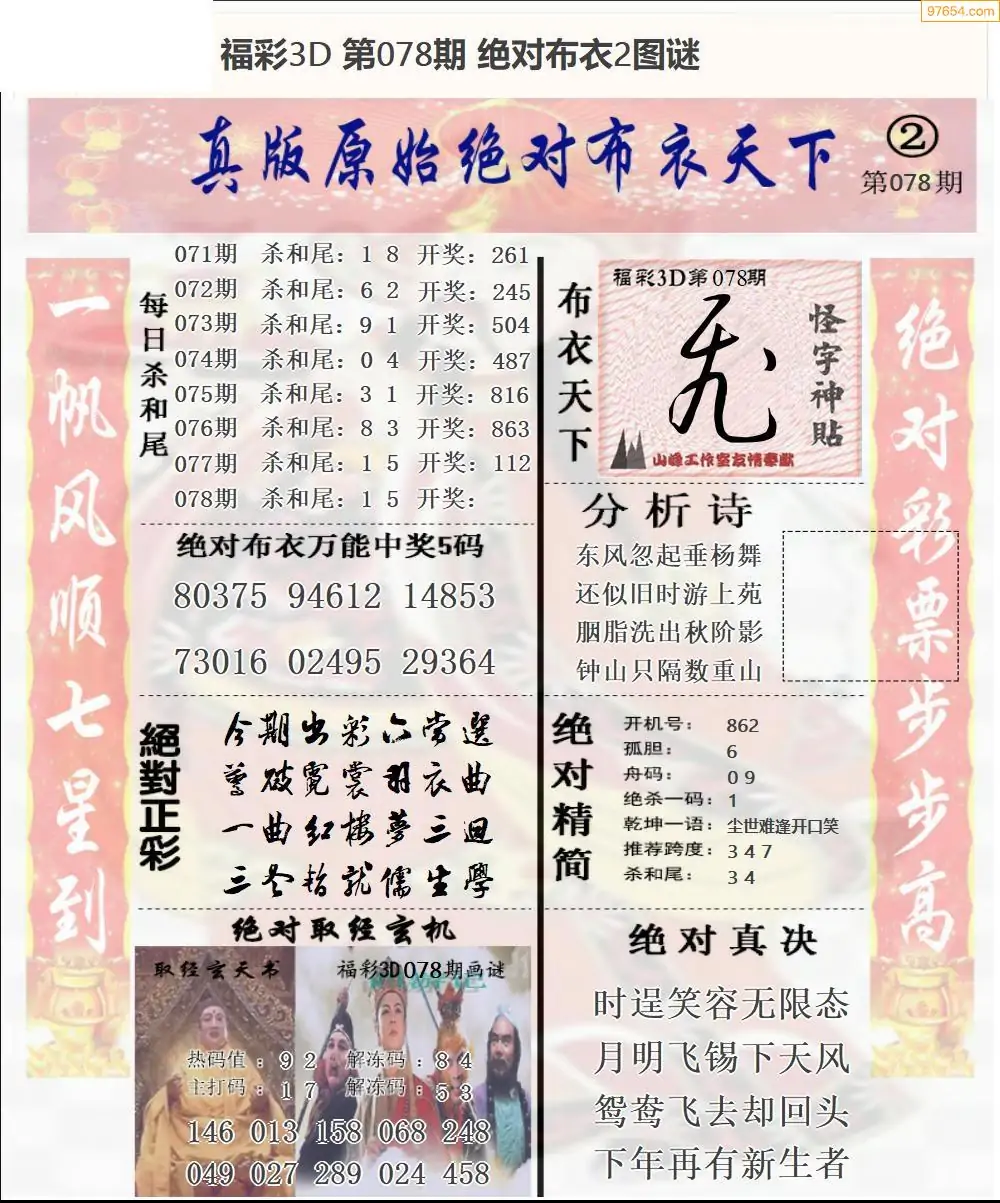 97654.com
福彩3D 第078期 绝对布衣2图谜
真版原始绝对布衣天下
②
第078期
一帆风顺七星到
每日杀和尾
071期 杀和尾：1 8 开奖：261
072期 杀和尾：6 2 开奖：245
073期 杀和尾：9 1 开奖：504
074期 杀和尾：0 4 开奖：487
075期 杀和尾：3 1 开奖：816
076期 杀和尾：8 3 开奖：863
077期 杀和尾：1 5 开奖：112
078期 杀和尾：1 5 开奖：
绝对布衣万能中奖5码
80375 94612 14853
73016 02495 29364
絕對正彩
今期出彩六当選
驚破霓裳羽衣曲
一曲红楼夢三迴
三冬皆就儒生學
绝对取经玄机
取经玄天书
福彩3D078期画谜
热码值：9 2 解冻码：8 4
主打码：1 7 解冻码：5 3
146 013 158 068 248
049 027 289 024 458
布衣天下
福彩3D第078期
怪字神貼
山峰工作室友情奉献
分析诗
东风忽起垂杨舞
还似旧时游上苑
胭脂洗出秋阶影
钟山只隔数重山
绝对精简
开机号： 862
孤胆： 6
舟码： 0 9
绝杀一码：1
乾坤一语：尘世难逢开口笑
推荐跨度：3 4 7
杀和尾： 3 4
绝对真决
时逞笑容无限态
月明飞锡下天风
鸳鸯飞去却回头
下年再有新生者
绝对彩票步步高